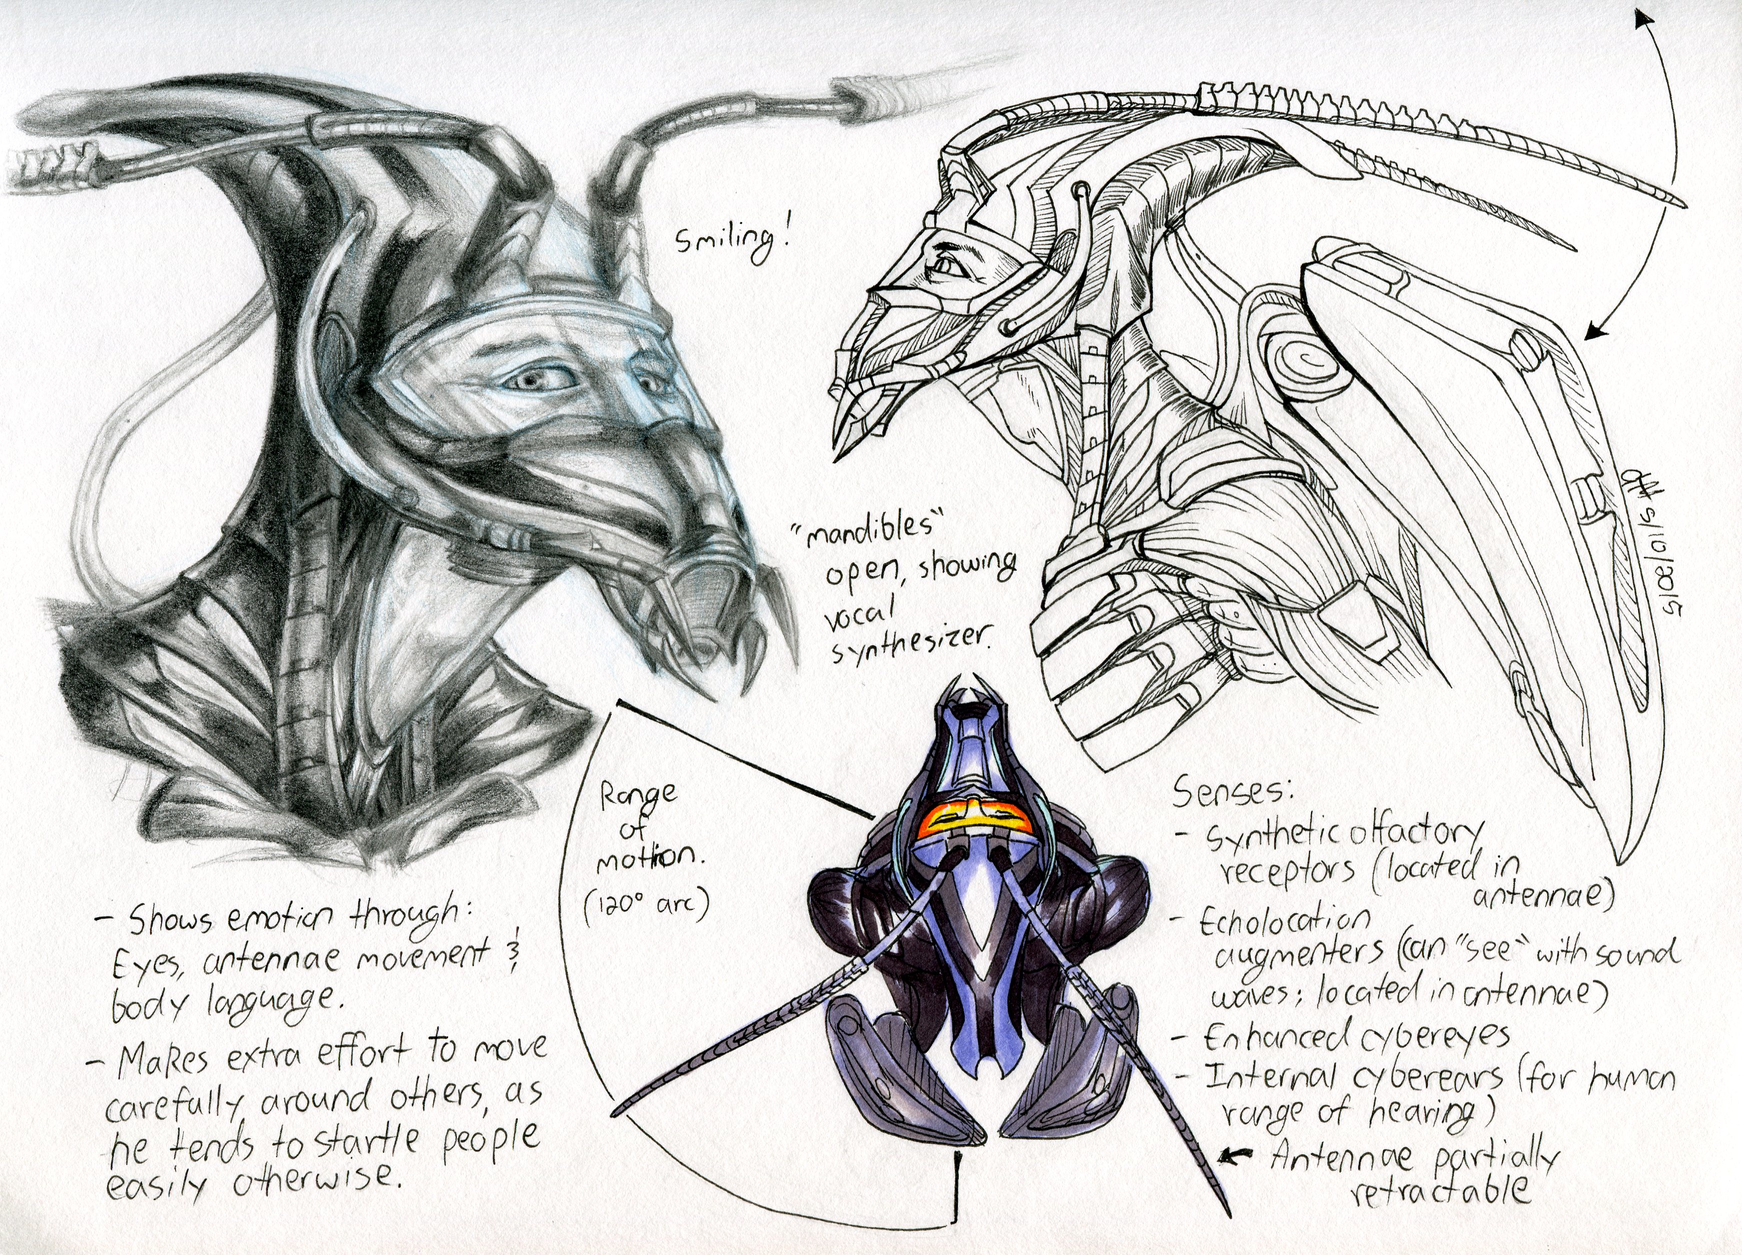 Smiling!
"mandibles"
open, showing
vocal
synthesizer.
Range
of
motion.
(120° arc)
- Shows emotion through:
Eyes, antennae movement &
body language.
- Makes extra effort to move
carefully around others, as
he tends to startle people
easily otherwise.
Senses:
- Synthetic olfactory
receptors (located in
antennae)
- Echolocation
augmenters (can "see" with sound
waves; located in antennae)
- Enhanced cybereyes
- Internal cyberears (for human
range of hearing)
Antennae partially
retractable
5/10/2015